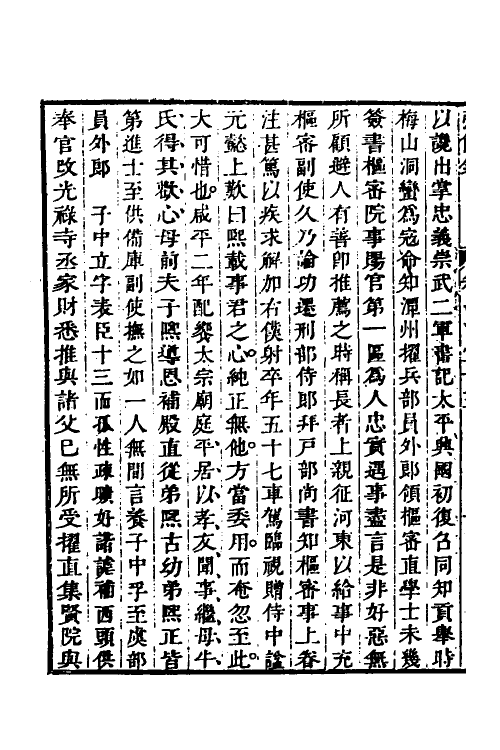 以讒出掌忠義崇武二軍書記太平興國初復召同知貢舉時
梅山洞蠻為寇俞知潭州擢兵部員外郎領樞密直學士未幾
簽書樞密院事賜官第一區為人忠實遇事盡言是非好惡無
所顧避人有善卽推薦之時稱長者上親征河東以給事中充
樞密副使久乃論功還刑部侍郎拜戶部尚書知樞密事上眷
注甚篤以疾求解加右僕射卒年五十七車駕臨視贈侍中諡
元懿上歎曰熙載事君之心純正無他方當委用而奄忽至此
大可惜也咸平二年配饗太宗廟庭平居以孝友聞事繼母牛
氏得其歡心母前夫子熙導恩補殿直從弟熙古幼弟熙正皆
第進士至供備庫副使撫之如一人無間言養子中孚至虞部
員外郎　子中立字表臣十三而孤性疎曠好諸謔補西頭供
奉官改光祿寺丞家財悉推與諸父巳無所受擢直集賢院與